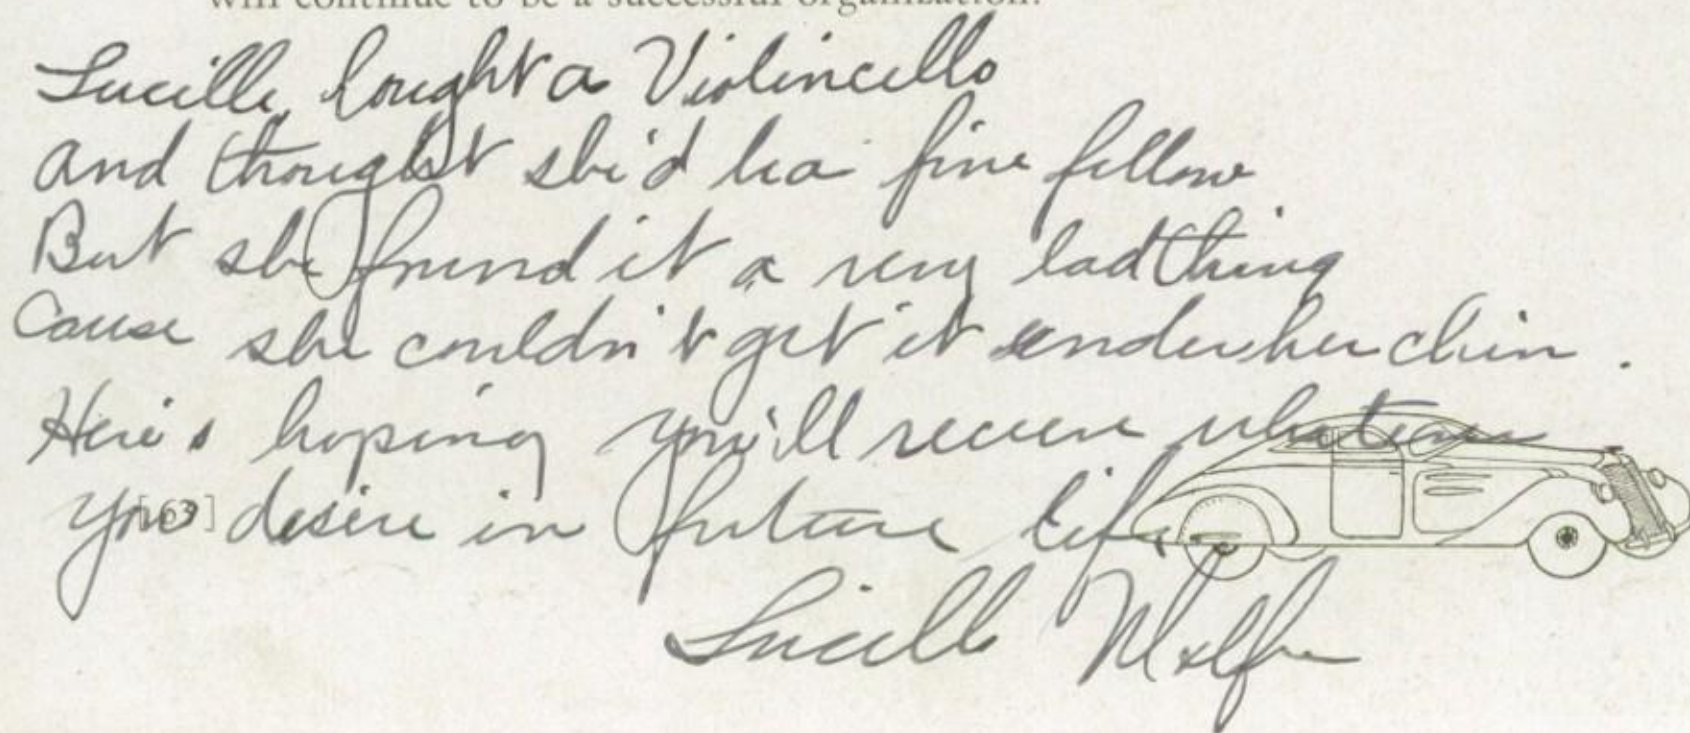 will continue to be a successful organization.
Lucille bought a Violincello
and thought she'd be a fine fellow
But she found it a very bad thing
Cause she couldn't get it under her chin.
Here's hoping you'll receive whatever
you desire in future life
[63]
Lucille